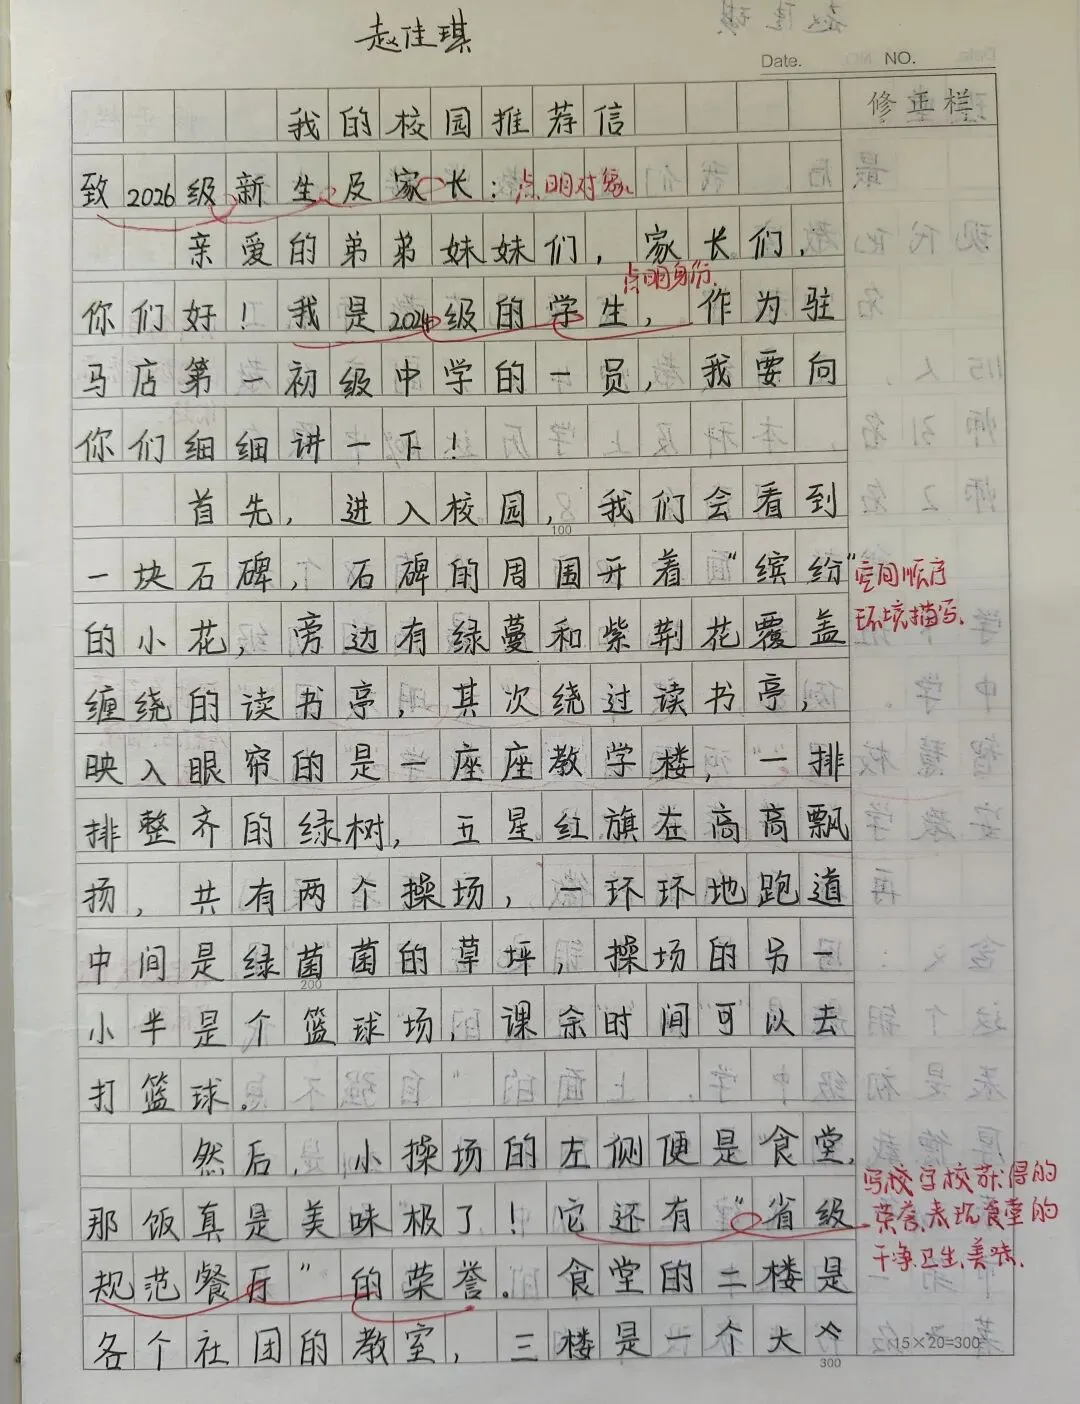 赵佳琪
Date. NO.
我的校园推荐信
修正栏
致2026级新生及家长:
点明对象
亲爱的弟弟妹妹们,家长们,
点明身份
你们好!我是2024级的学生,作为驻
马店第一初级中学的一员,我要向
你们细细讲一下!
首先,进入校园,我们会看到
100
一块石碑,石碑的周围开着“缤纷”
空间顺序
环境描写
的小花,旁边有绿蔓和紫荆花覆盖
缠绕的读书亭,其次绕过读书亭,
映入眼帘的是一座座教学楼,一排
排整齐的绿树,五星红旗在高高飘
扬,共有两个操场,一环环地跑道
中间是绿菌菌的草坪,操场的另一
200
小半是个篮球场,课余时间可以去
打篮球。
然后,小操场的左侧便是食堂,
写校学校获得的
荣誉,表现食堂的
干净卫生、美味.
那饭真是美味极了!它还有“省级
规范餐厅”的荣誉。食堂的二楼是
各个社团的教室,三楼是一个大
15×20=300
300